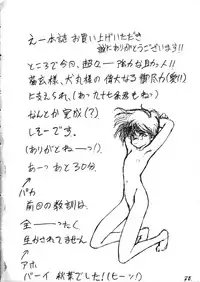 えー本誌お買い上げいただき
誠にありがとうございます!!
ところで今回、超々一強力な助っ人!!
犬丸様の偉大なる御尽力(愛!!)
に支えられ、(あっ九十七条君もねっ)
なんとか完成(?)
しそーです。
(ありがとねーっ!)
あーっあと30分.
バカ
前回の教訓は、
全─ったく
生かされてません
アホ
バーイ 秋葉でした!(ヒーン!)